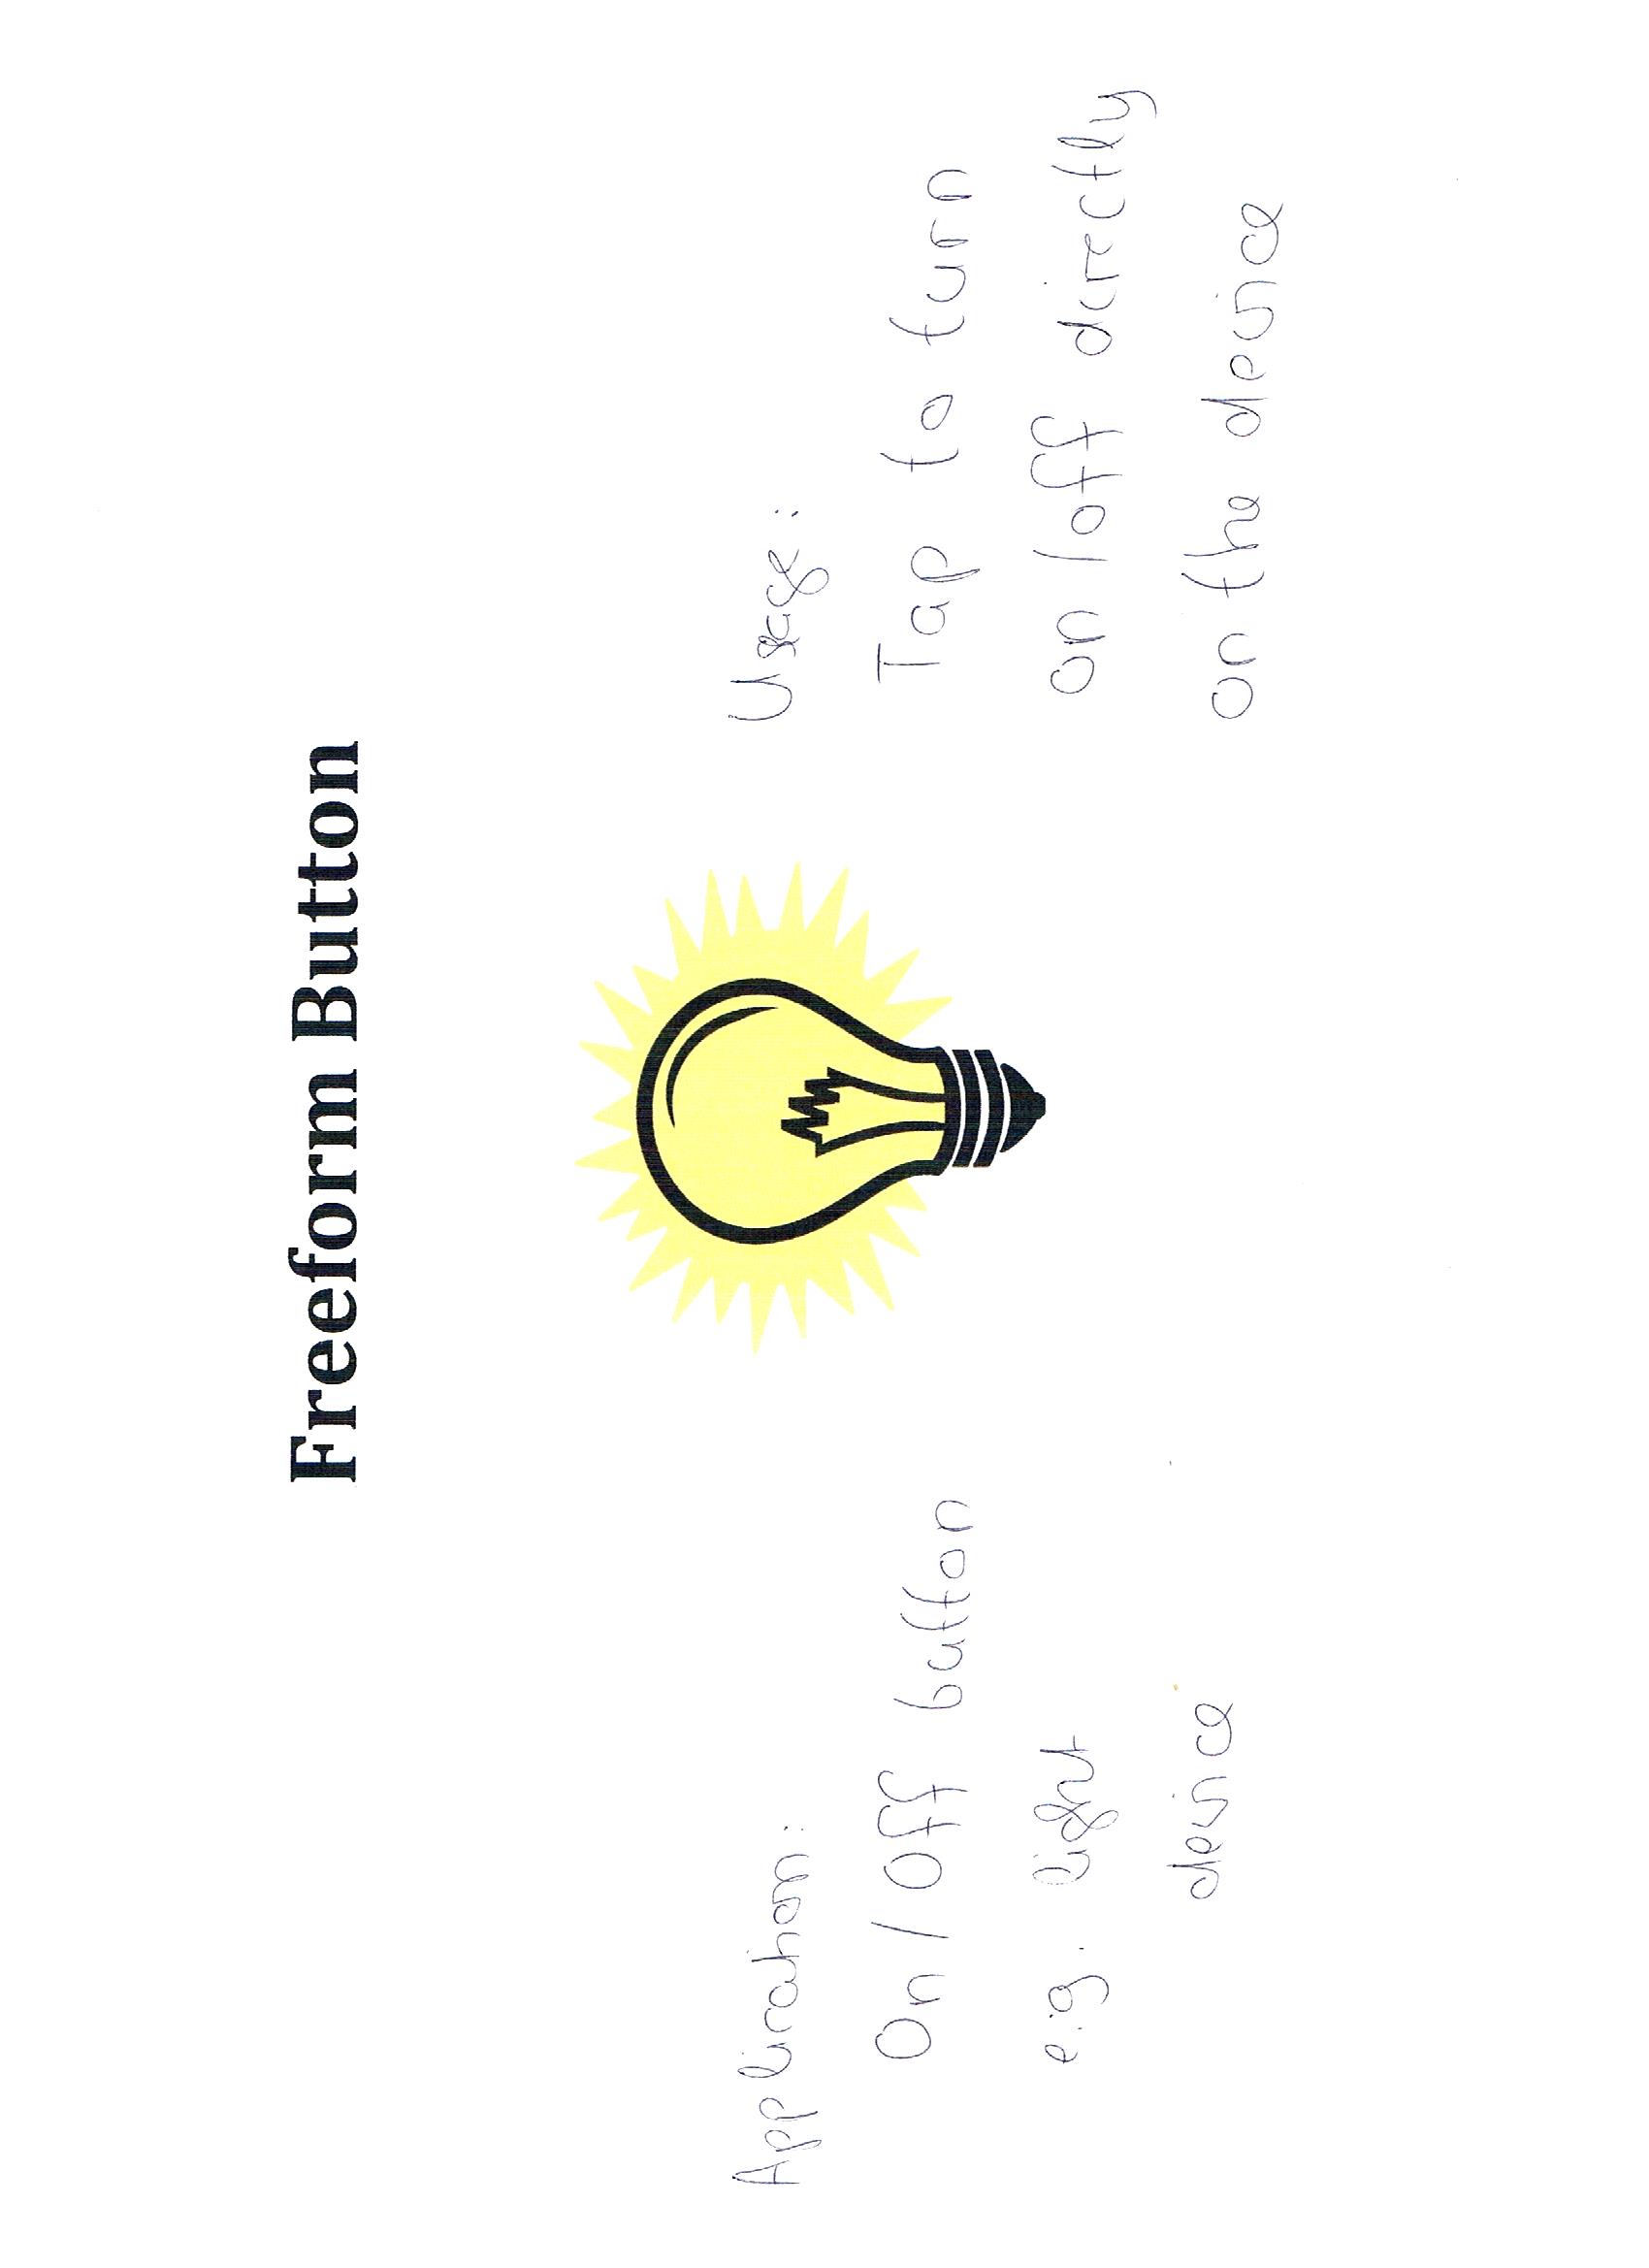 Freeform Button
Application:
On / Off button
e.g. light
device
Usage:
Tap to turn
on / off directly
on the device